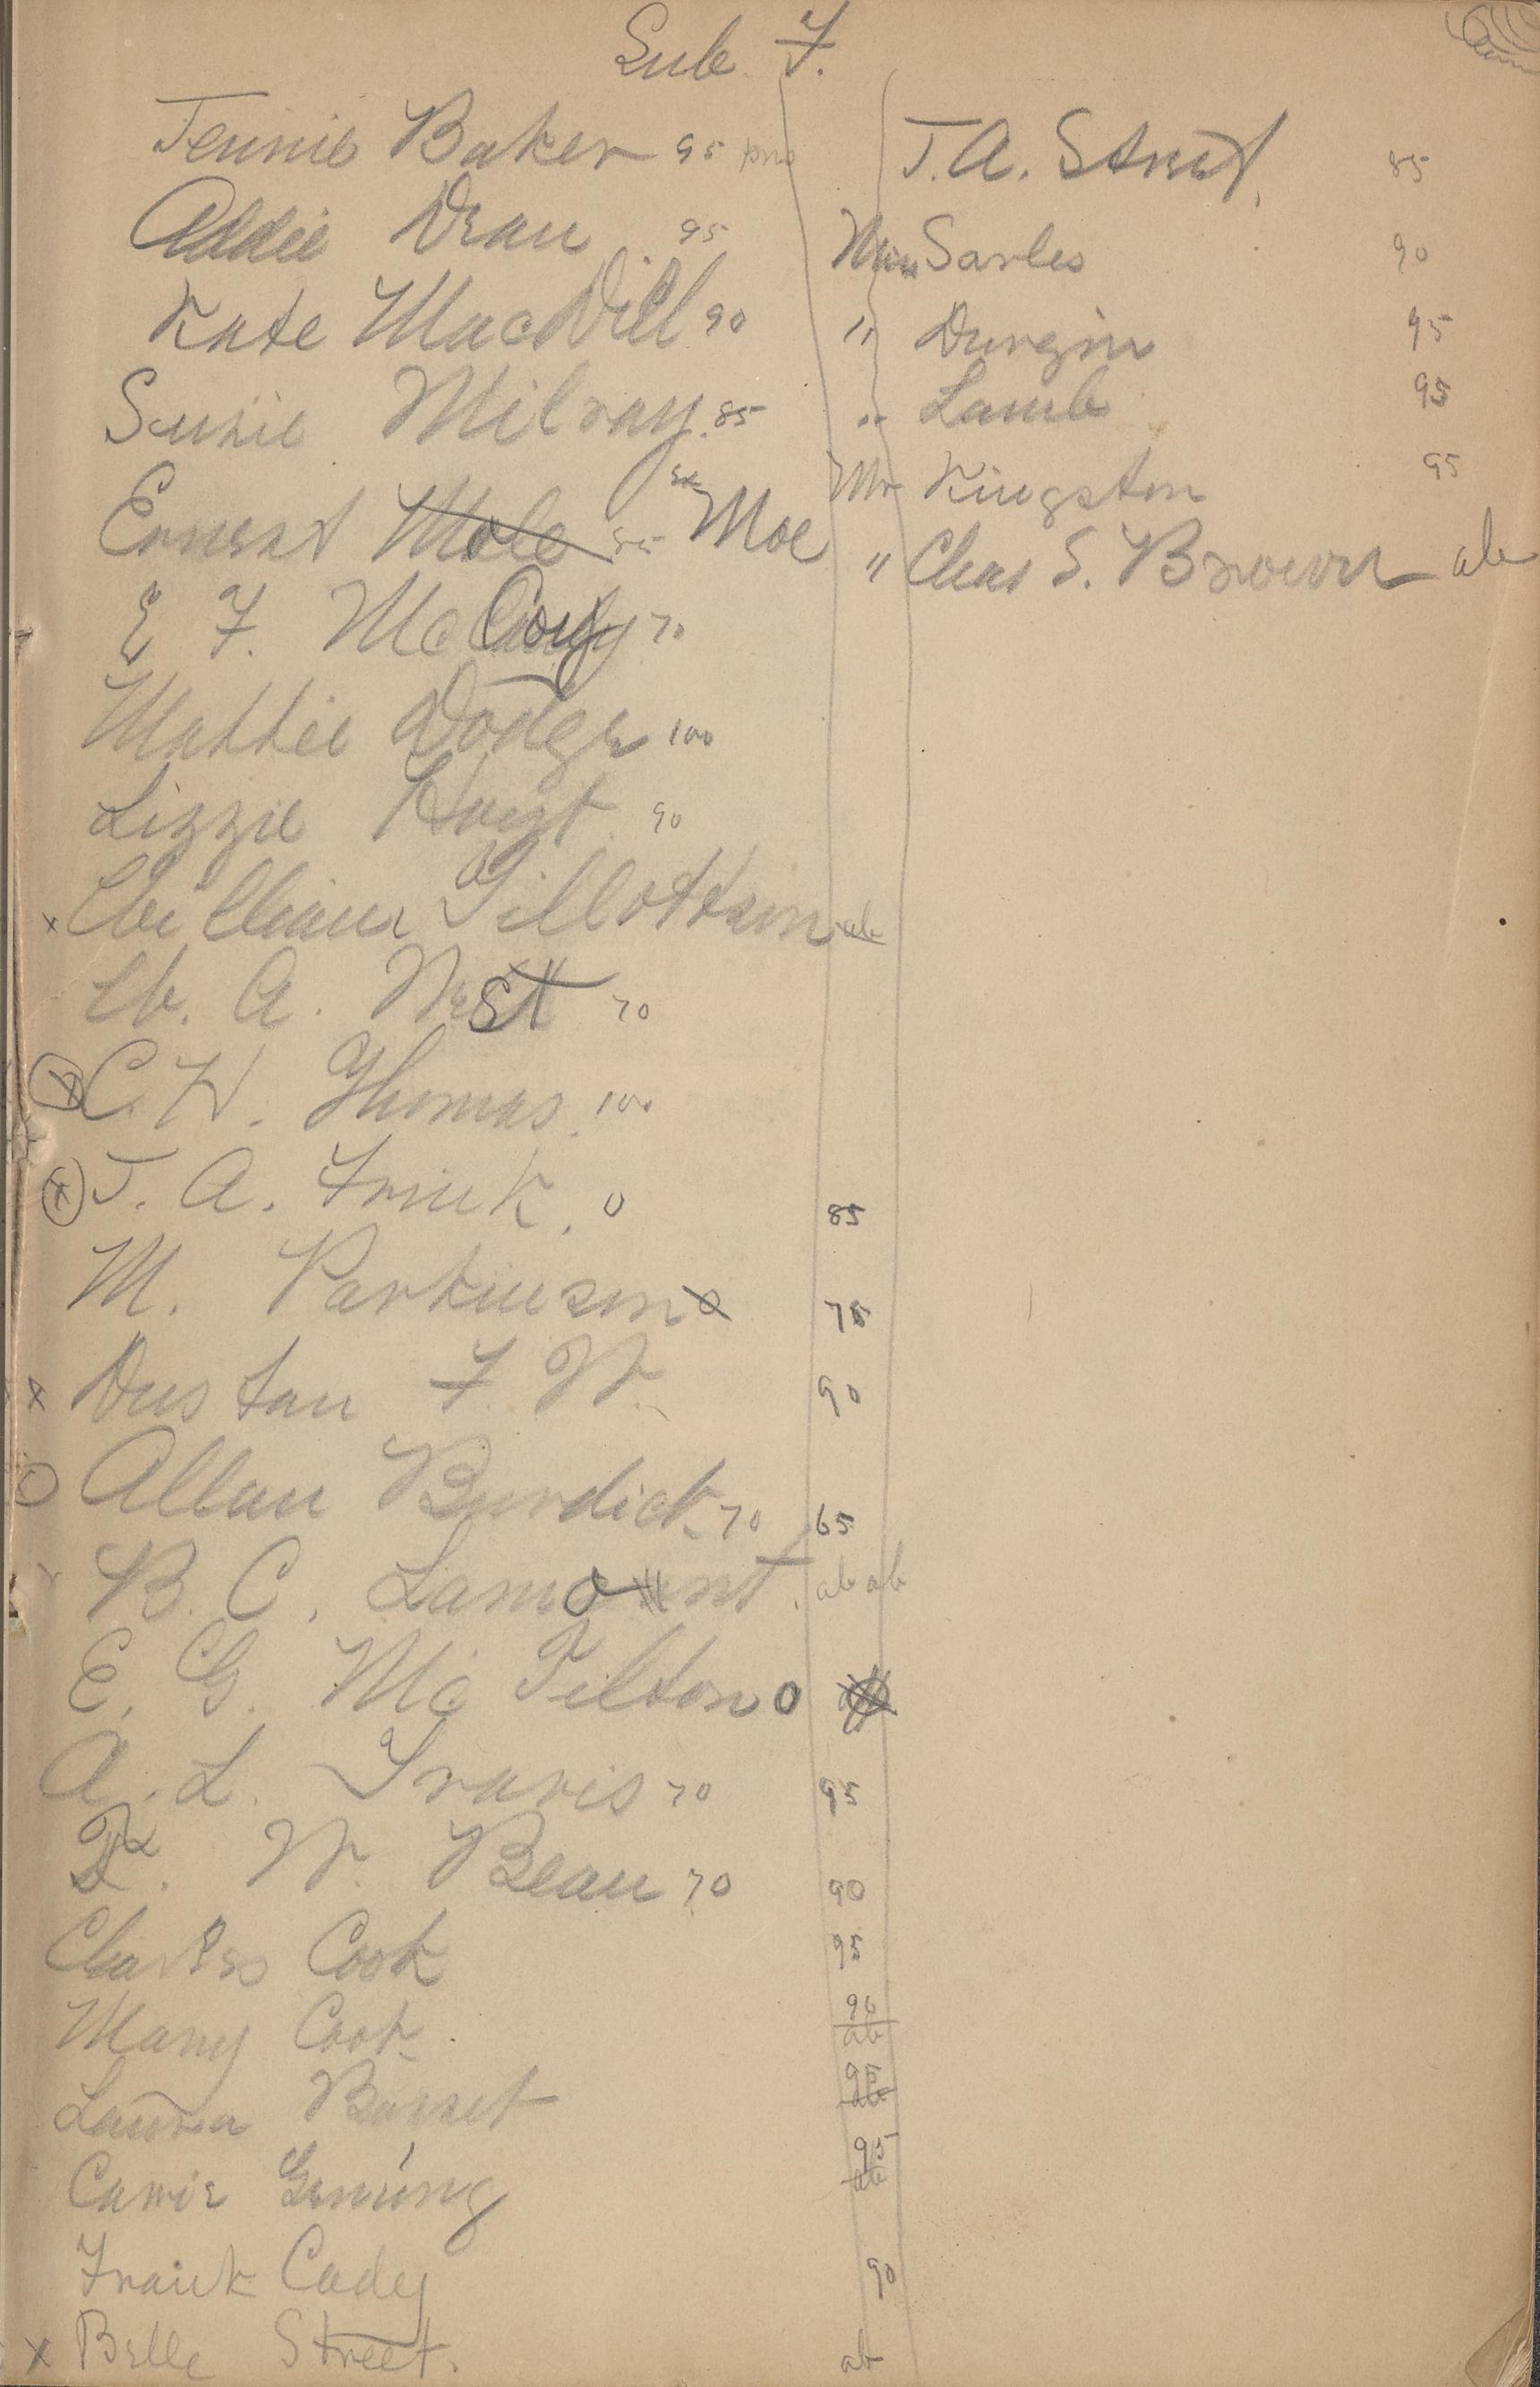 Sub. F.
Jennie Baker 95
Addie Dean 95
Kate MacDill 90
Susie Milray 85
Ernest Mole 85 Moe
E F. McCoy 70
Mattie Dodge 100
Lizzie Hoyt 90
x William Tillottson ab
W. A. West 70
x C. W. Thomas. 100
x T. A. Frink. 0 85
M. Parkinson 75
x Dustan F. W. 90
O Allan Burdick 70 65
B. C. Lamont. ab ab
E. G. Mc Tilton 0
A. L. Travis 70 95
W. Bean 70 90
Charles Cook 95
Mary Cook. 90 ab
Laura Basset 95 ab
Carrie Genung 95 ab
Frank Cady 90
x Belle Street. ab
T. A. Street, 85
Miss Sarles 90
" Durgin 95
" Lamb 95
Mr Kingston 95
" Chas S. Brown ab